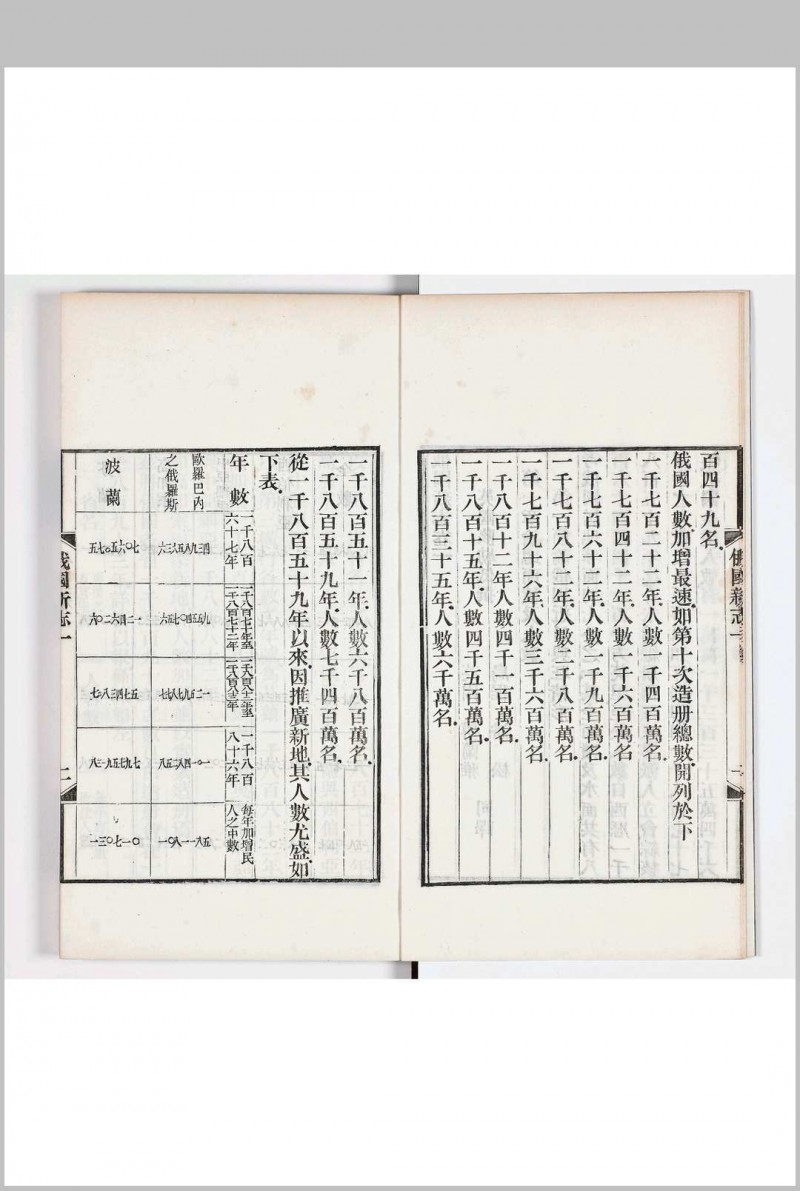 百四十九名.
俄國人數加增最速如第十次造册總數開列於下
一千七百二十二年.人數一千四百萬名.
一千七百四十二年.人數一千六百萬名.
一千七百六十二年.人數一千九百萬名.
一千七百八十二年.人數二千八百萬名.
一千七百九十六年.人數三千六百萬名.
一千八百十二年.人數四千一百萬名.
一千八百十五年.人數四千五百萬名.
一千八百三十五年.人數六千萬名.
俄國新志一
一千八百五十一年.人數六千八百萬名.
一千八百五十九年.人數七千四百萬名.
從一千八百五十九年以來.因推廣新地.其人數尤盛.如
下表.
年數
一千八百
六十七年
一千八百七十年至
一千八百七十二年
一千八百
八十六年
每年加增民
人之中數
歐羅巴內
之俄羅斯
六三六五八九三四
六五七〇四五五九
波蘭
五七〇五六〇七
六〇二六四二一
俄國新志一
二